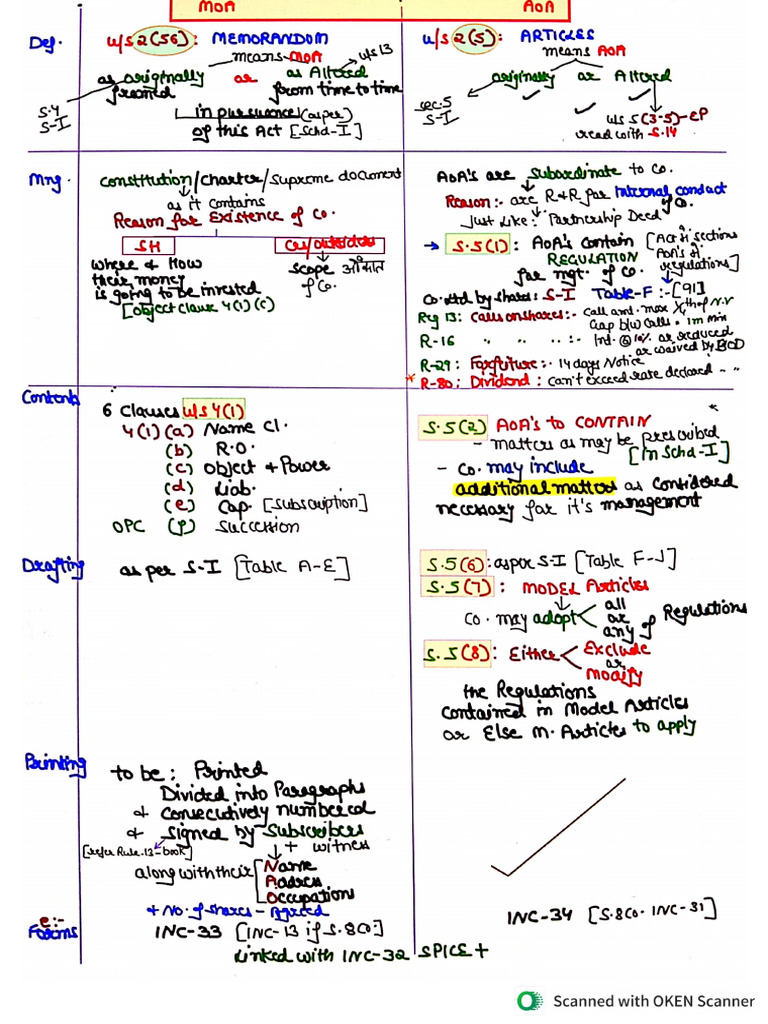 MOA
AOA
Def.
u/s 2(56): MEMORANDUM
means MOA
u/s 13
as originally framed or as Altered from time to time
S.4
S-I
in pursuance (as per)
of this Act [Schd-I]
u/s 2(5): ARTICLES
means AOA
originally or Altered
sec.5
S-I
u/s 5(3-5)-EP
read with S.14
Mng.
Constitution/Charter/Supreme document
as it contains
Reason for Existence of Co.
SH
Where & How
their money
is going to be invested
[Object clause 4(1)(c)
Crs/outsiders
scope औकात
of Co.
AOA's are subordinate to Co.
Reason:- are R&R for Internal conduct
of Co.
Just like:- Partnership Deed
→ S.5(1): AOA's contain [Act → sections
REGULATION AOA's →
for mgt. of Co. regulations]
Co. Ltd by shares: S-I Table-F:-[91]
Reg 13: Calls on shares:- call amt. max ¼th of N.V
Gap b/w calls = 1m min
R-16 " " " " :- Int. @ 10% or reduced
or waived by BOD
R-29: Forfeiture:- 14 days Notice
* R-80: Dividend: can't exceed rate declared - "
Contents
6 Clauses u/s 4(1)
4(1)(a) Name Cl.
(b) R.O.
(c) Object & Power
(d) Liab.
(e) Cap. [Subscription]
OPC (f) Succession
S.5(2) AOA's to CONTAIN
- matters as may be prescribed
[In Schd-I]
- Co. may include
additional matters as considered
necessary for it's management
Drafting
as per S-I [Table A-E]
S.5(6): as per S-I [Table F-J]
S.5(7): MODEL Articles
Co. may adopt all or any of Regulations
S.5(8): Either Exclude
or
Modify
the Regulations
contained in Model Articles
or Else M. Articles to apply
Printing
to be: Printed
Divided into Paragraphs
& consecutively numbered
& signed by Subscribers
[refer Rule.13-book]
+ witness
along with their Name
Address
Occupation
& No. of shares - Agreed
e:-
Forms
INC-33 [INC-13 if S.8 Co.]
INC-34 [S.8 Co. INC-31]
Linked with INC-32 SPICE +
Scanned with OKEN Scanner